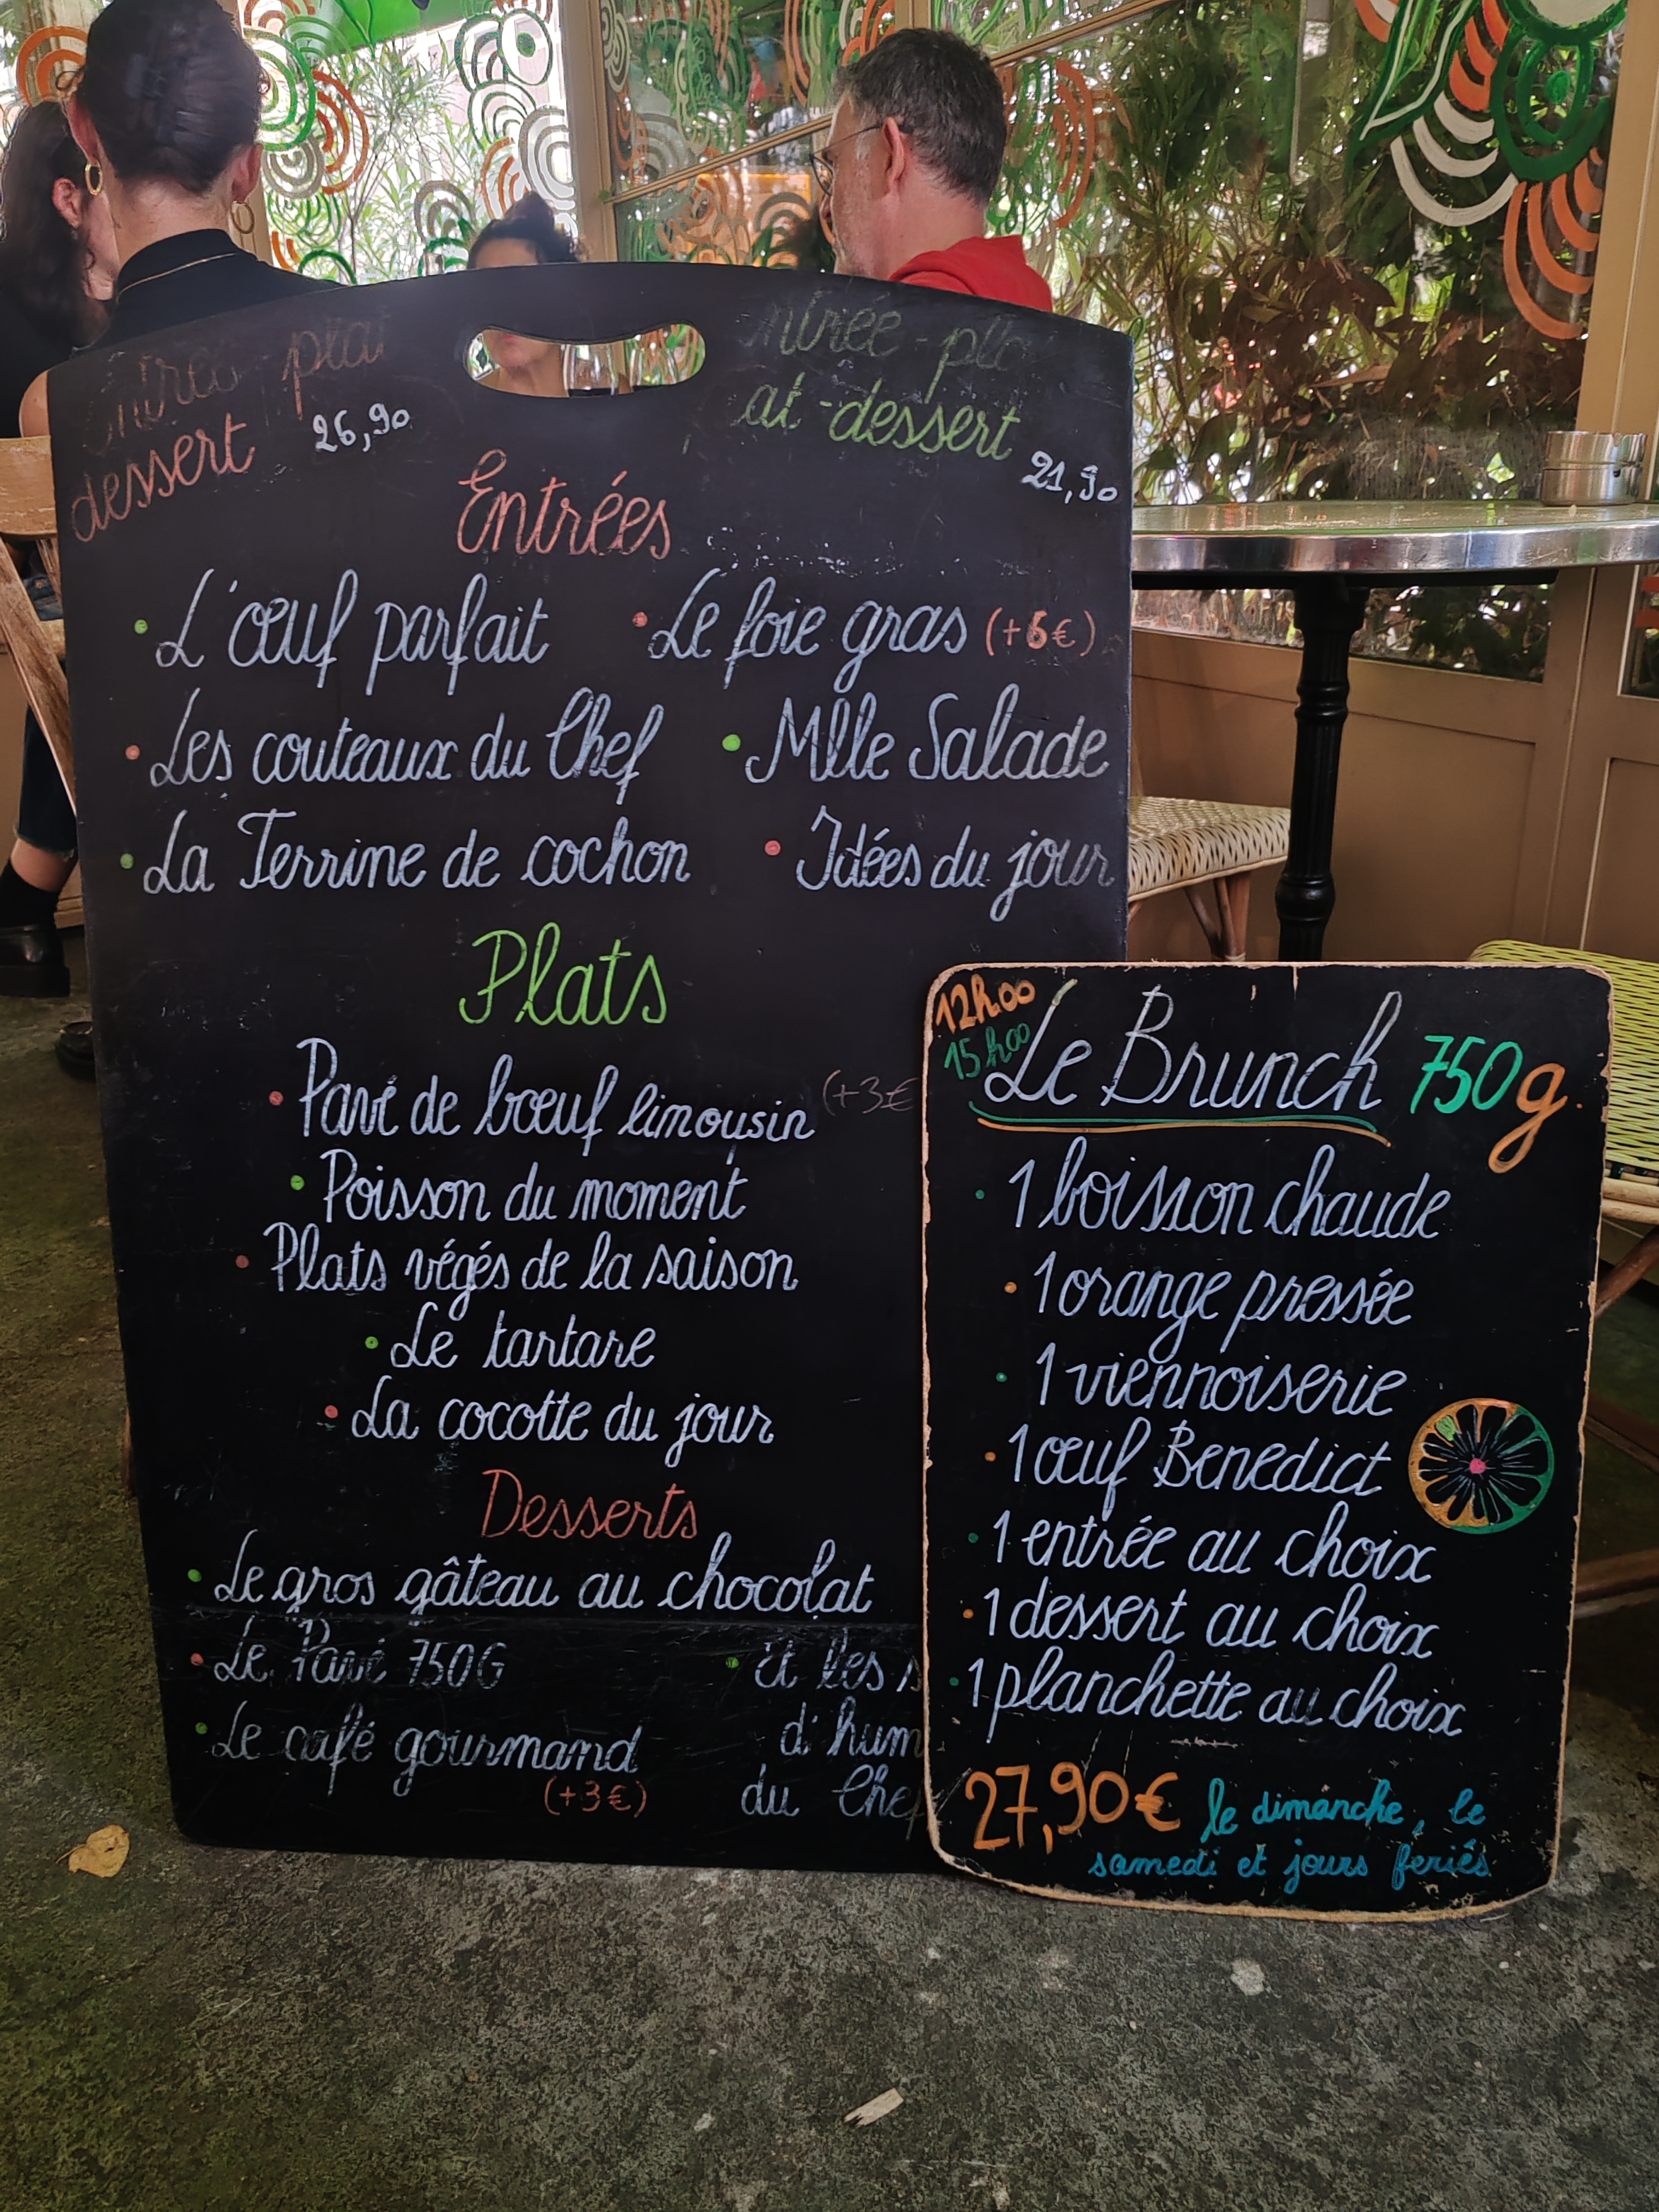 plat
dessert 26,90
entrée - pla
at - dessert 21,90
Entrées
L'œuf parfait
Le foie gras (+5€)
Les couteaux du Chef
Mlle Salade
La Terrine de cochon
Idées du jour
Plats
Pavé de bœuf limousin (+3€
Poisson du moment
Plats végés de la saison
Le tartare
La cocotte du jour
Desserts
Le gros gâteau au chocolat
Le Pavé 750G
Le café gourmand
(+3€)
Et les
d'hum
du Chef
12h00
15h00
Le Brunch 750g
1 boisson chaude
1 orange pressée
1 viennoiserie
1 œuf Benedict
1 entrée au choix
1 dessert au choix
1 planchette au choix
27,90€ le dimanche, le
samedi et jours feriés